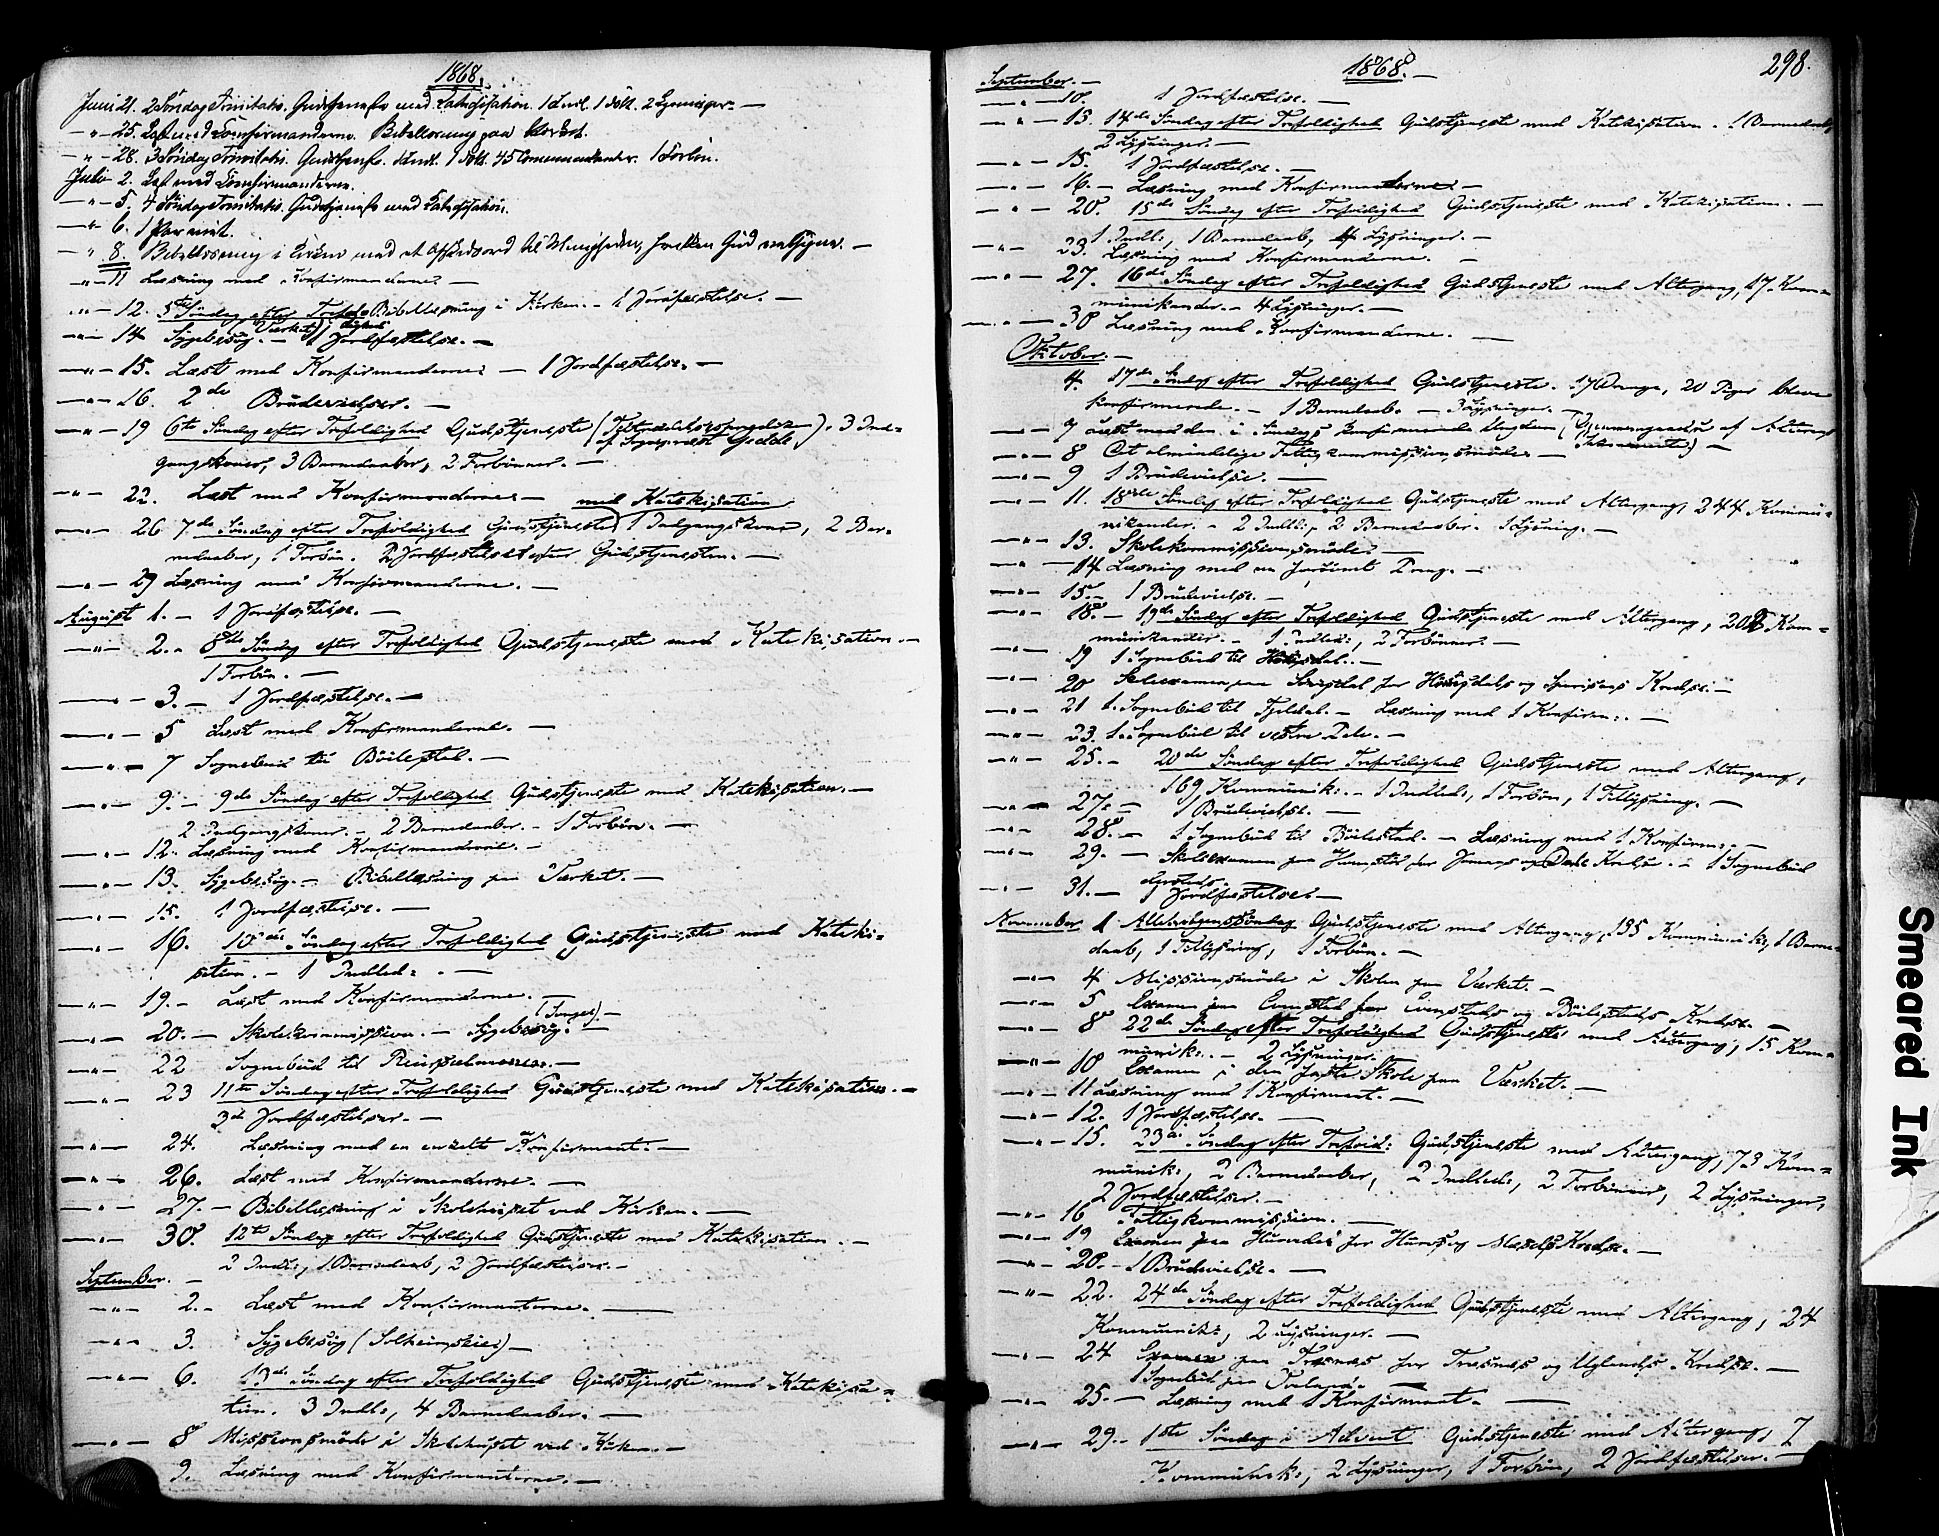 1868.
Juni 21. 2 Söndag Trinitatis. Gudstjeneste med Katechisation. 1 Indl. 1 Döbt. 2 Lysninger. —
— " — 25. Læst med Confirmanderne. Bibellæsning paa
— " — 28. 3 Söndag Trinitatis. Gudstjeneste. 1 Indl. 1 Döbt. 45 Communicanter. 1 Forbön.
Julie 2. Læst med Confirmanderne.
— " — 5, 4 Söndag Trinitatis. Gudstjeneste med Katechisation.
— " 6. 1 Par viet.
— " 8. Bibellæsning i Kirken med et Afskedsord til Menigheden, hvilken Gud velsigne. —
— " — 11 Læsning med Konfirmanderne —
— " — 12. 5te Söndag efter Trefol= Bibellæsning i Kirken. — 1 Jordfæstelse. —
— " — 14 Sygebesög. (Værket) — 1 Jordfæstelse. —
— " — 15. Læst med Konfirmanderne: — 1 Jordfæstelse. —
— " — 16. 2de Brudevielser. —
— " — 19 6te Söndag efter Trefoldighed Gudstjeneste (Tiltrædelsesprædiken), 3 Ind=
af Sognepræst Gedde,
gangskoner, 3 Barnedaaber, 2 Forbönner. —
— " — 22. Læst med Konfirmanderne — med Katekisation
— " — 26 7de Söndag efter Trefoldighed Gudstjeneste, 1 Indgangskone, 2 Bar=
nedaaber, 1 Forbön. 2 Jordfæstelser efter Gudstjenesten. —
— " — 29 Læsning med Konfirmanderne. —
August 1. — 1 Jordfæstelse. —
— " — 2. — 8de Söndag efter Trefoldighed Gudstjeneste med Katekisation. —
1 Forbön. —
— " — 3. — 1 Jordfæstelse. —
— " — 5 Læst med Konfirmanderne. —
— " — 7 Sognebud til Böilestad. —
— " — 9. — 9de Söndag efter Trefoldighed Gudstjeneste med Katekisation. —
2 Indgangskoner. — 2 Barnedaaber. — 1 Forbön. —
— " — 12. Læsning med Konfirmanderne. —
— " — 13. Sygebesög. — Bibellæsning paa Værket. —
— " — 15. 1 Jordfæstelse. —
— " — 16. 10de Söndag efter Trefoldighed Gudstjeneste med Kateki=
sation. — 1 Indled: —
— " — 19. — Læst med Konfirmanderne. —
— " — 20. — Skolekommission. — Sygebesög. (Songe). —
— " — 22 Sognebud til
— " — 23 11te Söndag efter Trefoldighed Gudstjeneste med Katekisation. —
3de Jordfæstelser. —
— " — 24. Læsning med en enkelt Konfirmant: —
— " — 26. Læst med Konfirmanderne. —
— " — 27. — Bibellæsning i Skolehuset ved Kirken. —
— " — 30. 12te Söndag efter Trefoldighed Gudstjeneste med Katekisation. —
2 Indl:, 1 Barnedaab, 2 Jordfæstelser. —
September. —
— " — 2. — Læst med Konfirmanterne. —
— " — 3. Sygebesög (Solheimseie) —
— " — 6. 13de Söndag efter Trefoldighed Gudstjeneste med Katekisa=
tion. 3 Indl:, 4 Barnedaaber. —
— " — 8 Missionsmöde i Skolehuset ved Kirken. —
9. Læsning med Konfirmanterne. —
1868. —
298.
September. —
— " — 10. 1 Jordfæstelse. —
— " — 13. 14de Söndag efter Trefoldighed Gudstjeneste med Katekisation. 1 Barnedaab,
2 Lysninger. —
— " — 15. 1 Jordfæstelse. —
— " — 16. — Læsning med Konfirmanterne. —
— " — 20. 15de Söndag efter Trefoldighed Gudstjeneste med Katekisation. —
1 Indl:, 1 Barnedaab, 4 Lysninger. —
— " — 23. Læsning med Konfirmanderne. —
— " — 27. 16de Söndag efter Trefoldighed Gudstjeneste med Altergang, 17 Kom=
munikander. — 4 Lysninger. —
— " — 30 Læsning med Konfirmanderne. —
Oktober. —
4. 17de Söndag efter Trefoldighed Gudstjeneste. 17 Drenge, 20 Piger bleve
konfirmerede. — 1 Barnedaab. — 3 Lysninger. —
— " — 7 Læst med den i Söndags konfirmerede Ungdom (Gjennemgaaelse af Alterens
Sakramente) —
— " — 8 Et almindelige Fattigkommissionsmöde —
— " — 9 1 Brudevielse. —
— " — 11. 18de Söndag efter Trefoldighed Gudstjeneste med Altergang, 244 Kommu=
nikander. — 2 Indl:, 2 Barnedaaber. 1 Lysning. —
— " — 13. Skolekommissionsmöde. —
— " — 14 Læsning med en forsömt Dreng. —
— " — 15. — 1 Brudevielse. —
— " — 18. — 19de Söndag efter Trefoldighed Gudstjeneste med Altergang, 202 Kom=
munikander. — 1 Indled:, 2 Forbönner. —
— " — 19 1 Sognebud til —
— " — 20 Skoleexamen paa for og Kredse. —
— " — 21 1 Sognebud til — Læsning med 1 Konfirm:. —
— " — 23. 1 Sognebud til vestre Dale. —
— " — 25. — 20de Söndag efter Trefoldighed Gudstjeneste med Altergang,
169 Kommunik:. — 1 Indled:, 1 Forbön, 1 Tillysning. —
— " — 27. — 1 Brudevielse. —
— " — 28. — 1 Sognebud til Böilestad. — Læsning med 1 Konfirm:. —
— " — 29. — Skoleexamen paa for og Dale Kredse. — 1 Sognebud
— " — 31. — 1 Jordfæstelse. —
November 1. Allehelgenssöndag Gudstjeneste med Altergang, 135 Kommunik:, 1 Barne=
daab, 1 Tillysning, 1 Forbön. —
— " — 4 Missionsmöde i Skolen paa Værket. —
— " — 5 Examen paa Evenstad for Evenstads og Böilestads Kredse. —
— " — 8 22de Söndag efter Trefoldighed Gudstjeneste med Altergang, 15 Kom=
munik:. — 2 Lysninger.
— " — 10 Examen i den faste Skole paa Værket. —
— " — 11 Læsning med 1 Konfirmant. —
— " — 12. 1 Jordfæstelse. —
— " — 15. 23de Söndag efter Trefold: Gudstjeneste med Altergang, 73 Kom=
munik:, 2 Barnedaaber, 2 Indled:, 2 Forbönner, 2 Lysninger,
2 Jordfæstelser. —
— " — 16 Fattigkommission. —
— " — 19 Examen paa for og Kredse. —
— " — 20. — 1 Brudevielse. —
— " — 22. 24de Söndag efter Trefoldighed Gudstjeneste med Altergang, 24
Kommunik:, 2 Lysninger. —
— " — 24 Examen paa Træsnæs for Træsnæs og Uglands Kredse. —
1 Sognebud paa
— " — 25. — Læsning med 1 Konfirmant. —
— " — 29. — 1ste Söndag i Advent Gudstjeneste med Altergang, 7
Kommunik:, 2 Lysninger, 1 Forbön, 2 Jordfæstelser. —
Smeared Ink